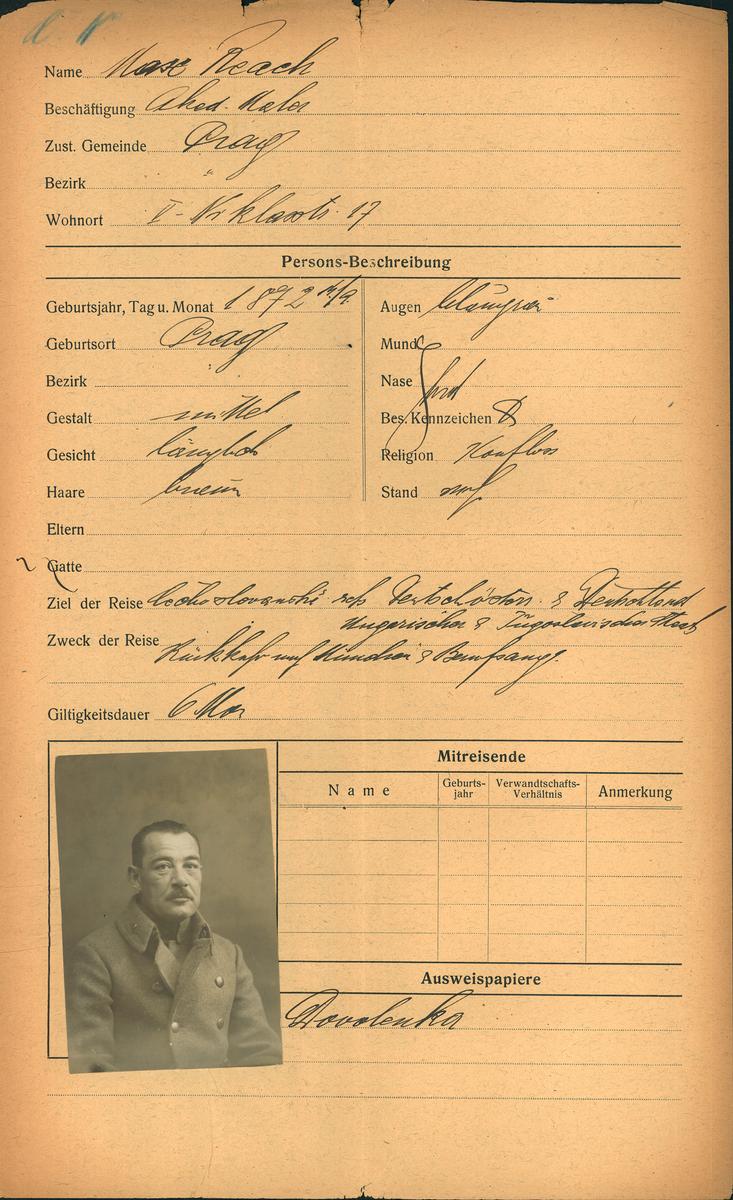 Name Max Reach
Beschäftigung Akad. Maler
Zust. Gemeinde Prag
Bezirk "
Wohnort V - Niklasstr. 17
Persons-Beschreibung
Geburtsjahr, Tag u. Monat 1872
Geburtsort Prag
Bezirk "
Gestalt mittel
Gesicht länglich
Haare braun
Augen blaugrau
Mund
Nase
Bes. Kennzeichen
Religion Konflos
Stand
Eltern
Gatte
Ziel der Reise Deutschöster. & Deutschland
Ungarischer & Jugoslavischer Staat
Zweck der Reise Rückkehr nach München &
Giltigkeitsdauer 6 Mon
Mitreisende
Name
Geburts-jahr
Verwandtschafts-Verhältnis
Anmerkung
Ausweispapiere
Dovolenka